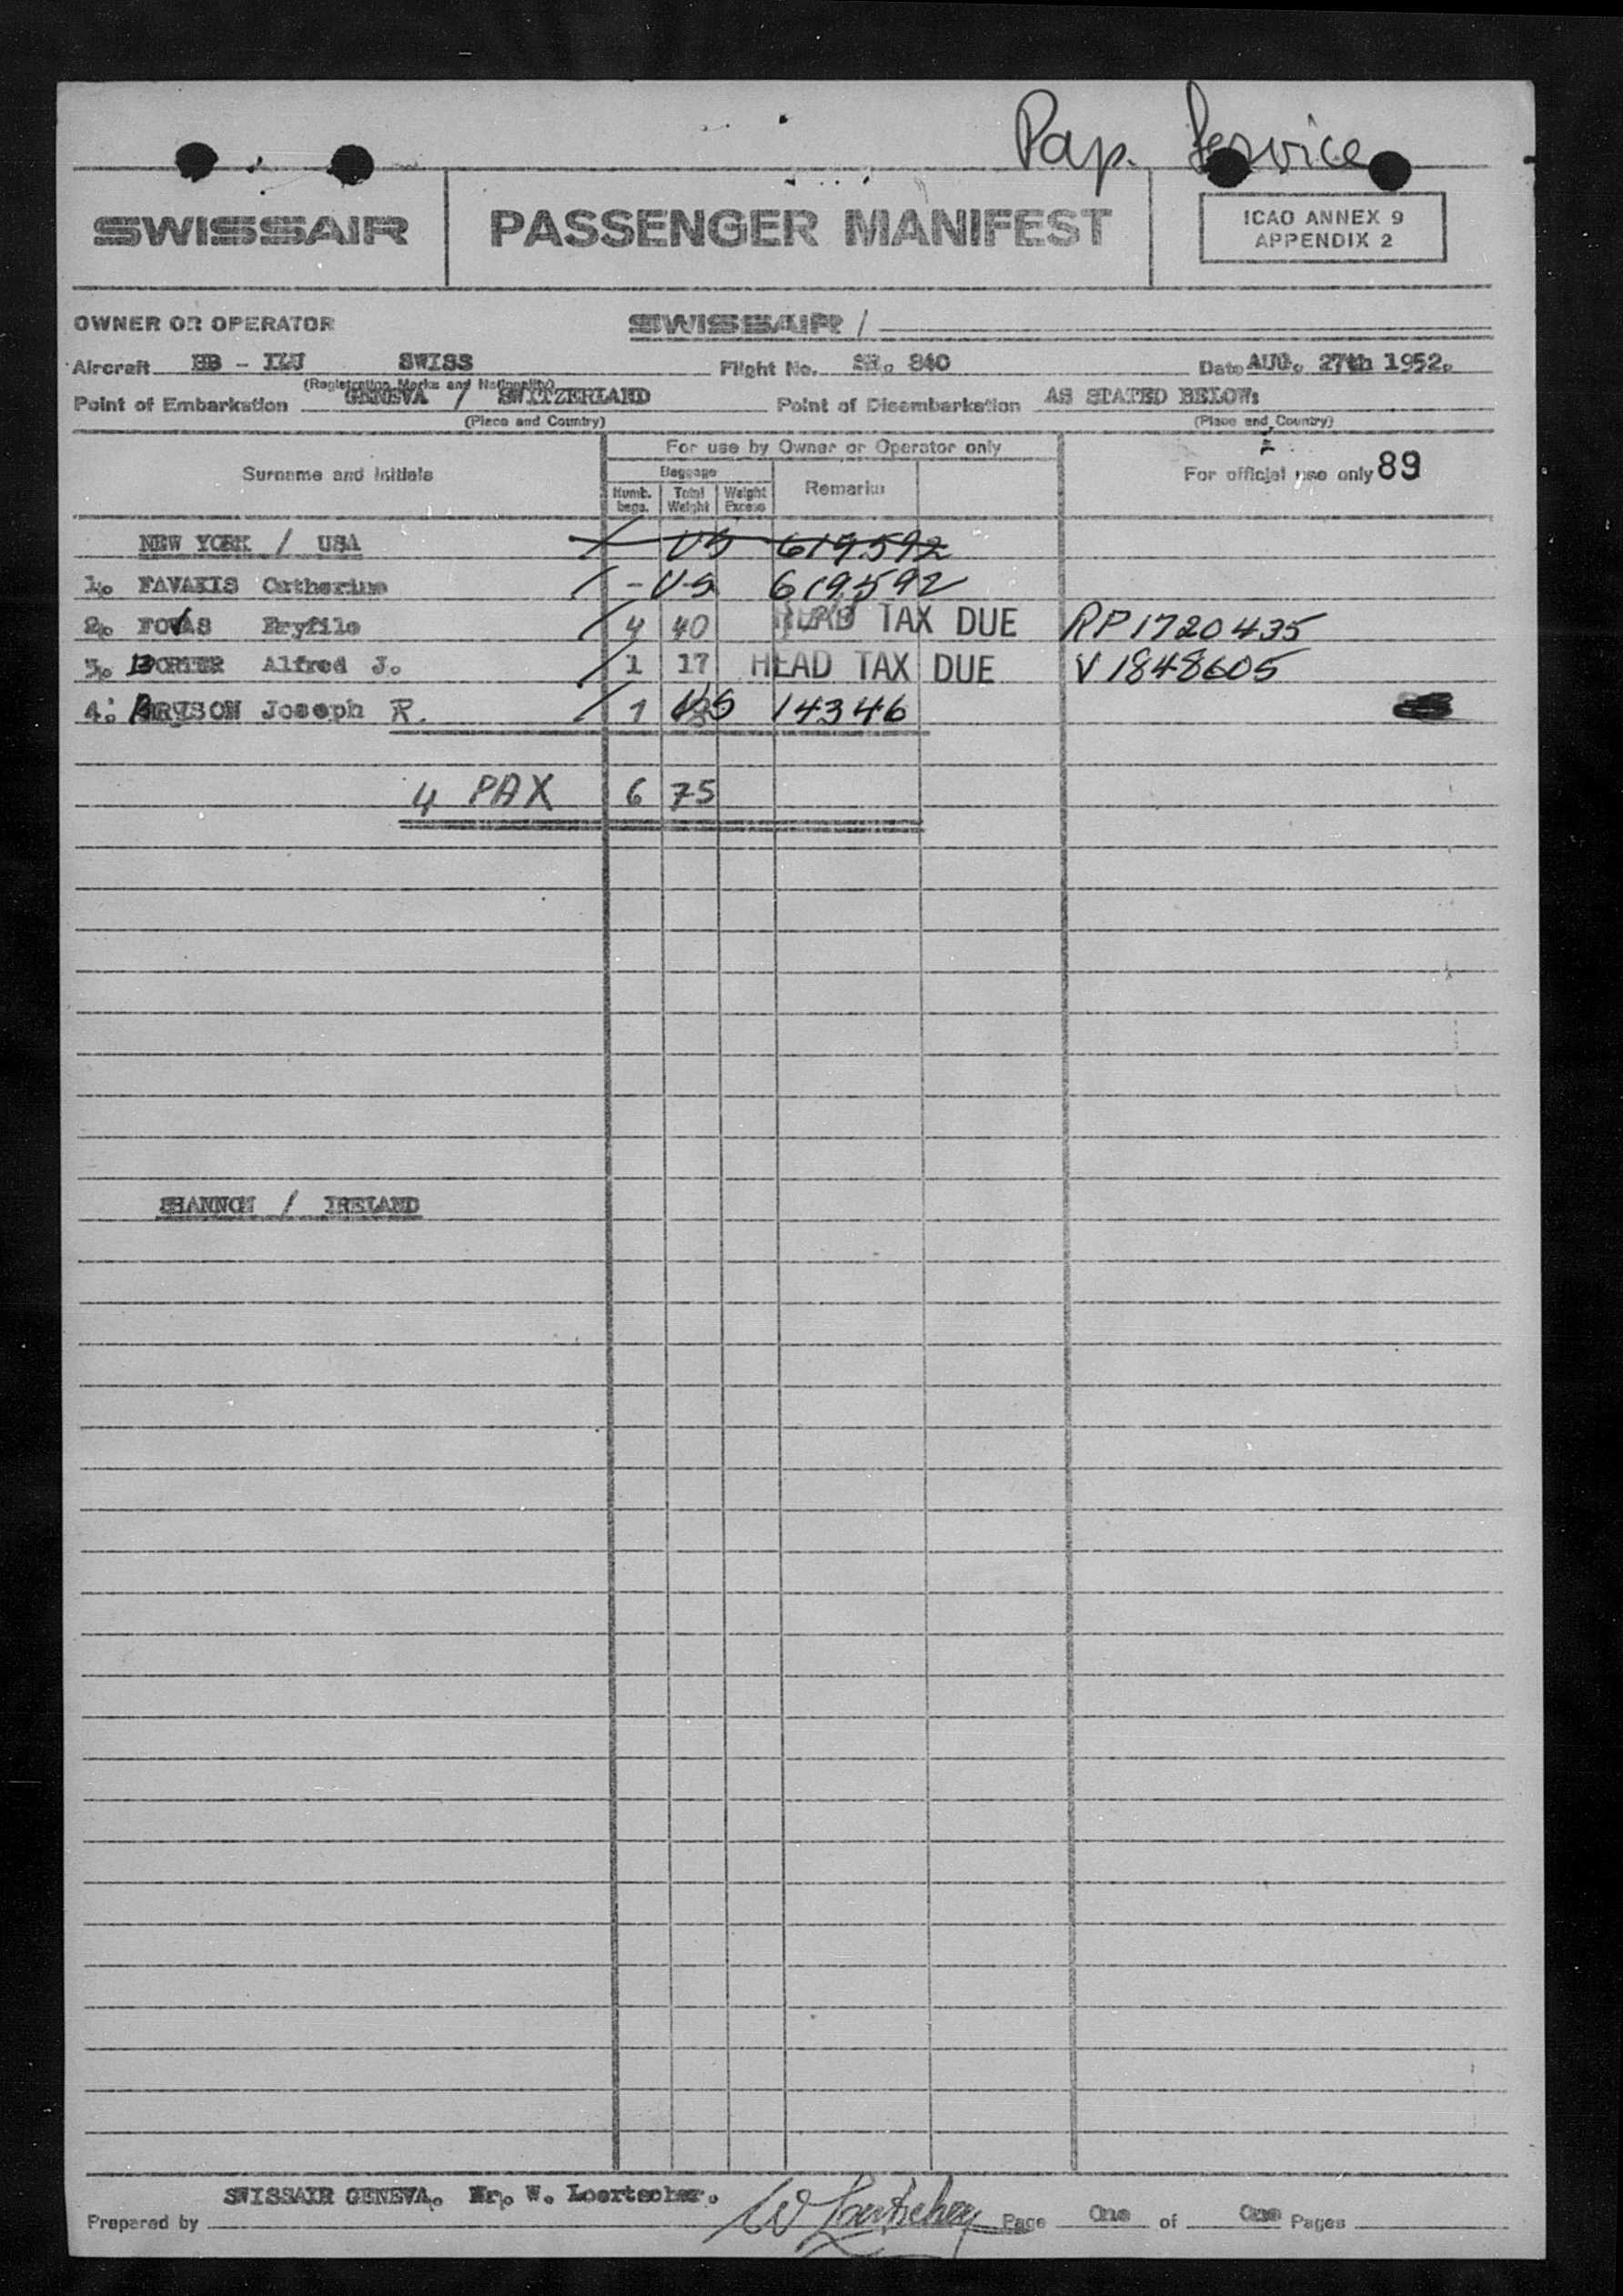 Pap. Service
SWISSAIR PASSENGER MANIFEST ICAO ANNEX 9
APPENDIX 2
OWNER OR OPERATOR SWISSAIR /
Aircraft HB - ILU SWISS Flight No. SR. 840 Date AUG. 27th 1952.
(Registration Marks and Nationality)
Point of Embarkation GENEVA / SWITZERLAND Point of Disembarkation AS STATED BELOW:
(Place and Country) (Place and Country)
For use by Owner or Operator only
Surname and Initials Baggage Remarks For official use only 89
Numb. Total Weight
bags. Weight Excess
NEW YORK / USA / US 619592
1. FAVAKIS Catherine / - US 619592
2. Eryfile / 4 40 HEAD TAX DUE RP 1720435
3. Alfred J. / 1 17 HEAD TAX DUE V 1848605
4. Joseph R. / 1 US 14346
4 PAX 6 75
SHANNON / IRELAND
SWISSAIR GENEVA. Mr. W. Loertscher.
Prepared by W Loertscher Page One of One Pages